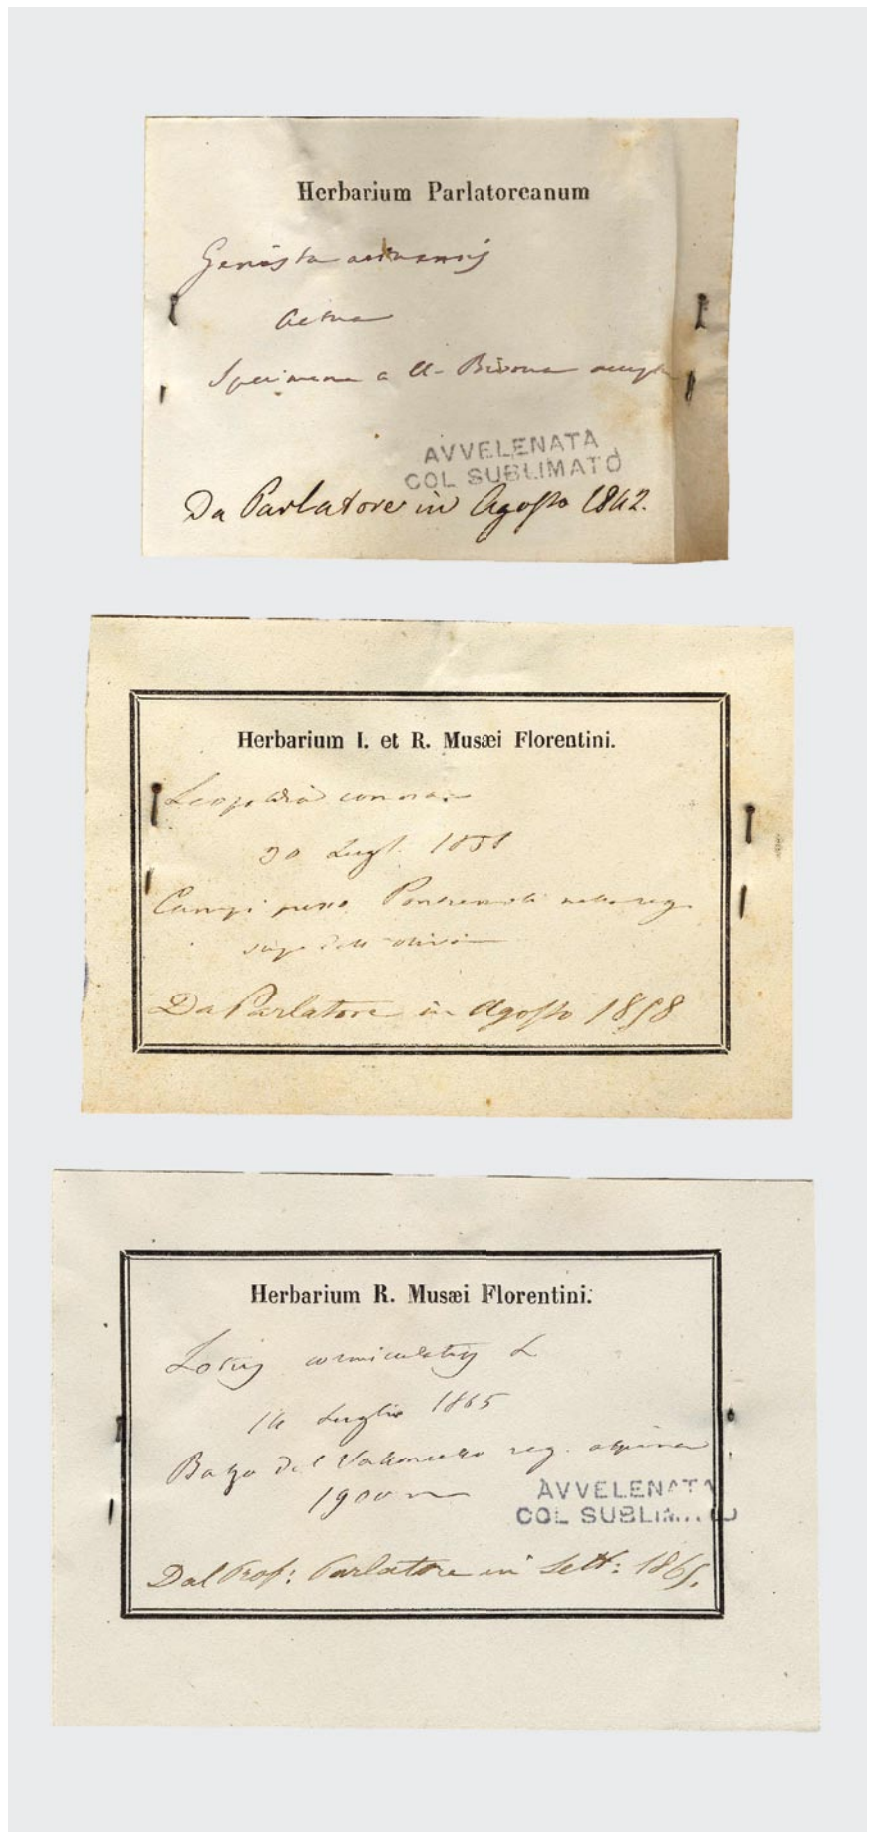 Herbarium Parlatoreanum
Genista aetnensis
Aetna
Specimena a Bivona
AVVELENATA
COL SUBLIMATO
Da Parlatore in Agosto 1842.
Herbarium I. et R. Musæi Florentini.
Leopoldia comosa
30 Lugl. 1858
Campi presso Pontremoli nella reg.
Da Parlatore in Agosto 1858
Herbarium R. Musæi Florentini.
Lotus corniculatus L
14 Luglio 1865
del reg. alpina
1900 m
AVVELENATA
COL SUBLIM...O
Dal Prof: Parlatore in Sett: 1865.